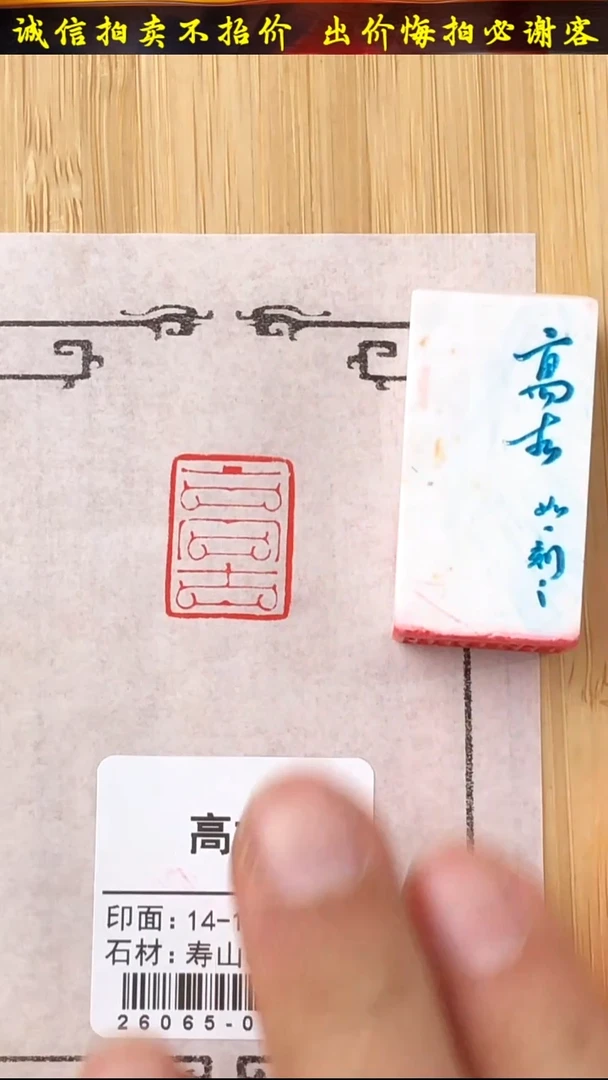 诚信拍卖不抬价 出价悔拍必谢客
高古
高古
如一刻
高
印面：14-1
石材：寿山
26065-0